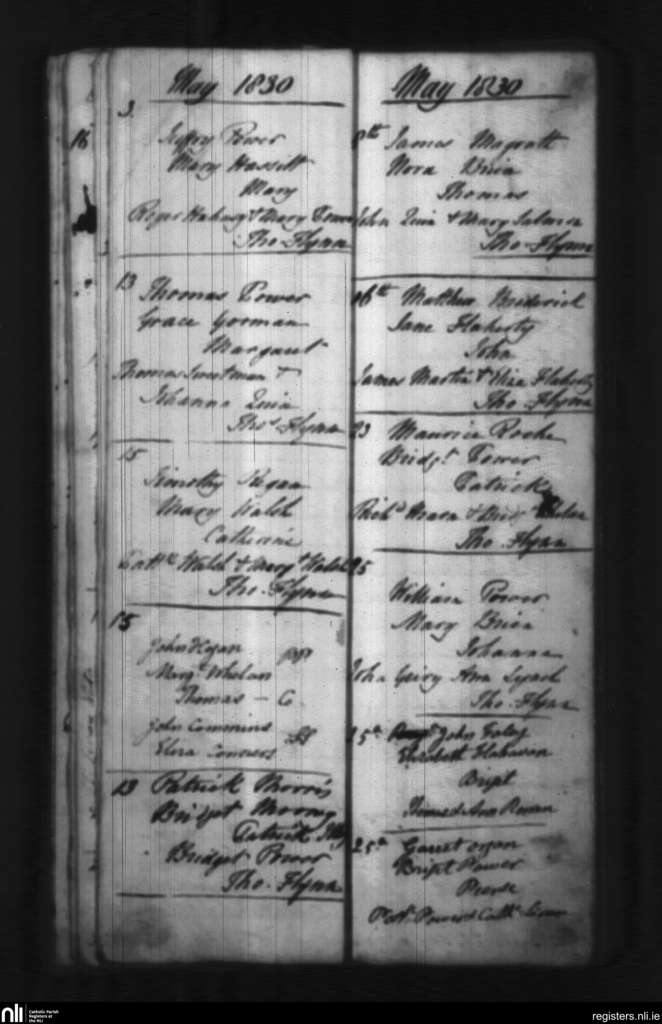 May 1830
3
16
Jeffry Power
Mary Hassitt
Mary
Roger Hahasy & Mary Power
Tho. Flynn
13
Thomas Power
Grace Gorman
Margaret
Thomas Sweetman &
Johanna Quin
Thos. Flynn
15
Timothy Regan
Mary Walsh
Catherine
Walsh & Mary Walsh
Tho. Flynn
15
John Hogan
Marg. Whelan
pp
Thomas - C
John Commins
Eliza Connors
SS
13 Patrick Morris
Bridget Mooney
Patrick
Bridget Power
Tho. Flynn
May 1830
8th James Magrath
Nora
Thomas
John Quin & Mary
Tho. Flynn
16th Matthew Broderick
Jane Flaherty
John
James Martin & Eliza Flaherty
Tho. Flynn
23 Maurice Roche
Bridgt. Power
Patrick
Richd. Mara &
Tho. Flynn
25
William Power
Mary Brien
Johanna
John Geiry Ann
Tho. Flynn
25th John Foley
Elizabeth
Bript
Ann
25th Garret
Bript Power
Pierse
Patt. Power & Cath.
nli
Catholic Parish
Registers at
the NLI
registers.nli.ie